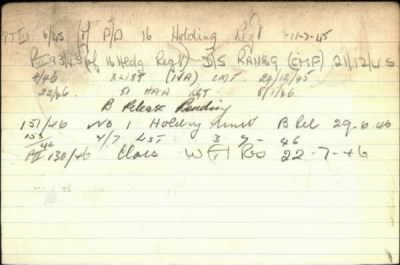 6/45 of P/A 16 Holding Regt 11-7-45
PII 93/45 of 16 Hedg Regt D/S RANBQ (CMF) 21/12/45
4/46 X LIST (IVA) CMF 24/12/45
22/46. 51 HAA RGT 8/1/46
B Release Pending
151/46 No 1 Holding Unit B Rel 29-6-46
153/46 Y/7 LIST 3-7-46
PII 130/46 Class W(T) Res 22-7-46